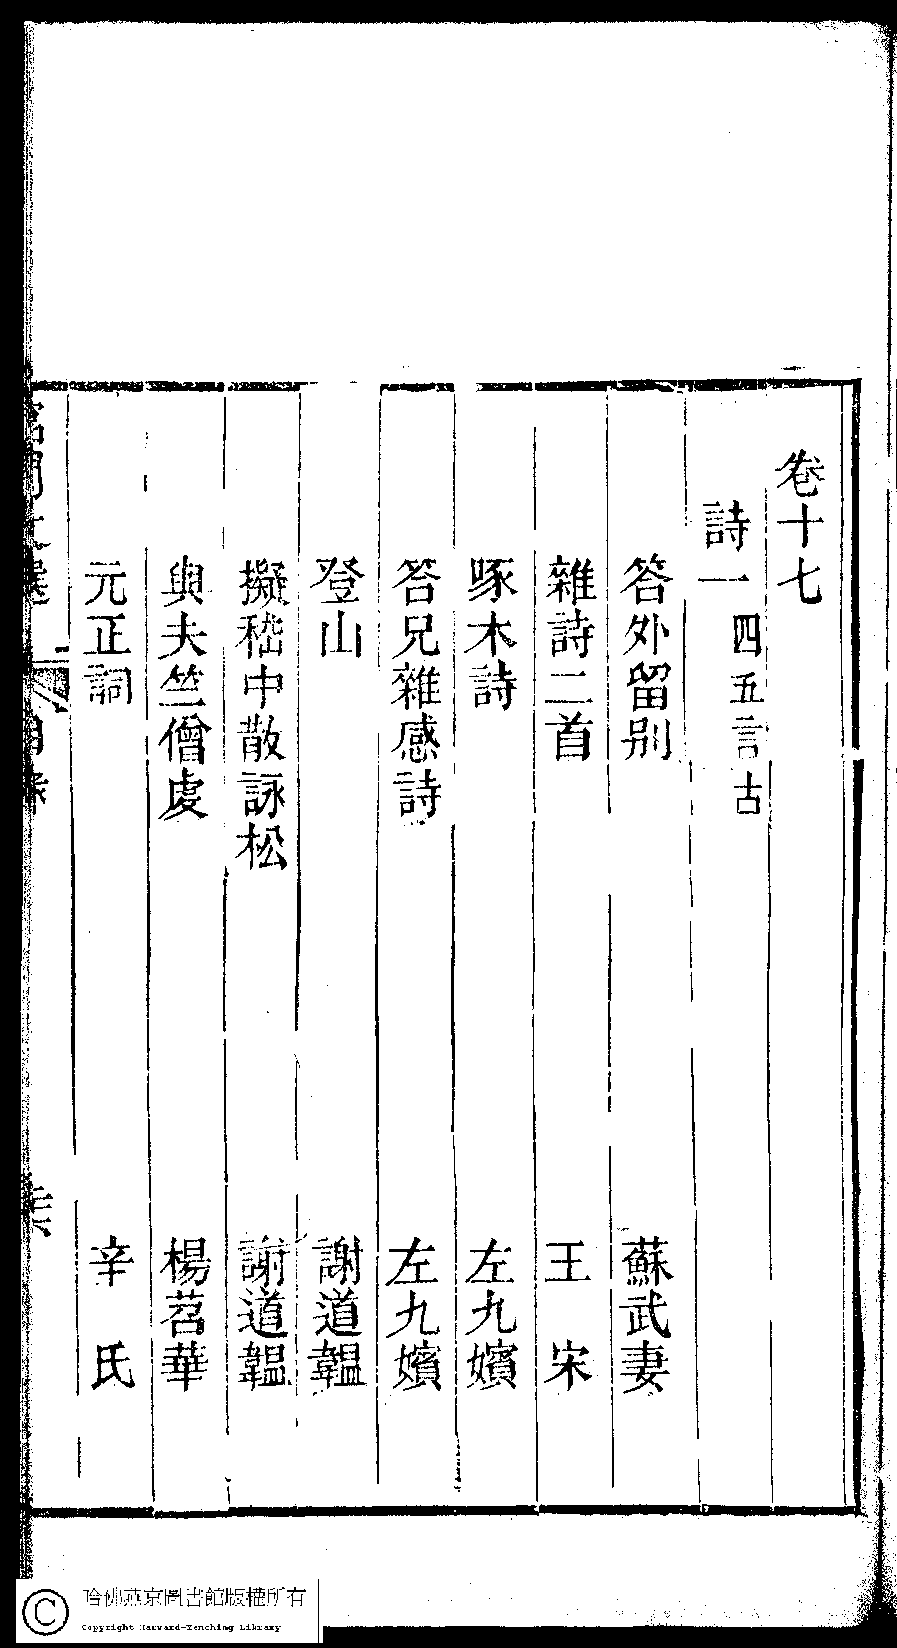 卷十七
詩一 四五言古
答外留别 蘇武妻
雜詩二首 王宋
啄木詩 左九嬪
答兄雜感詩 左九嬪
登山 謝道韞
擬嵇中散詠松 謝道韞
與夫竺僧度 楊苕華
元正詞 辛氏
文選 目錄
哈佛燕京圖書館版權所有
Copyright Harvard-Yenching Library